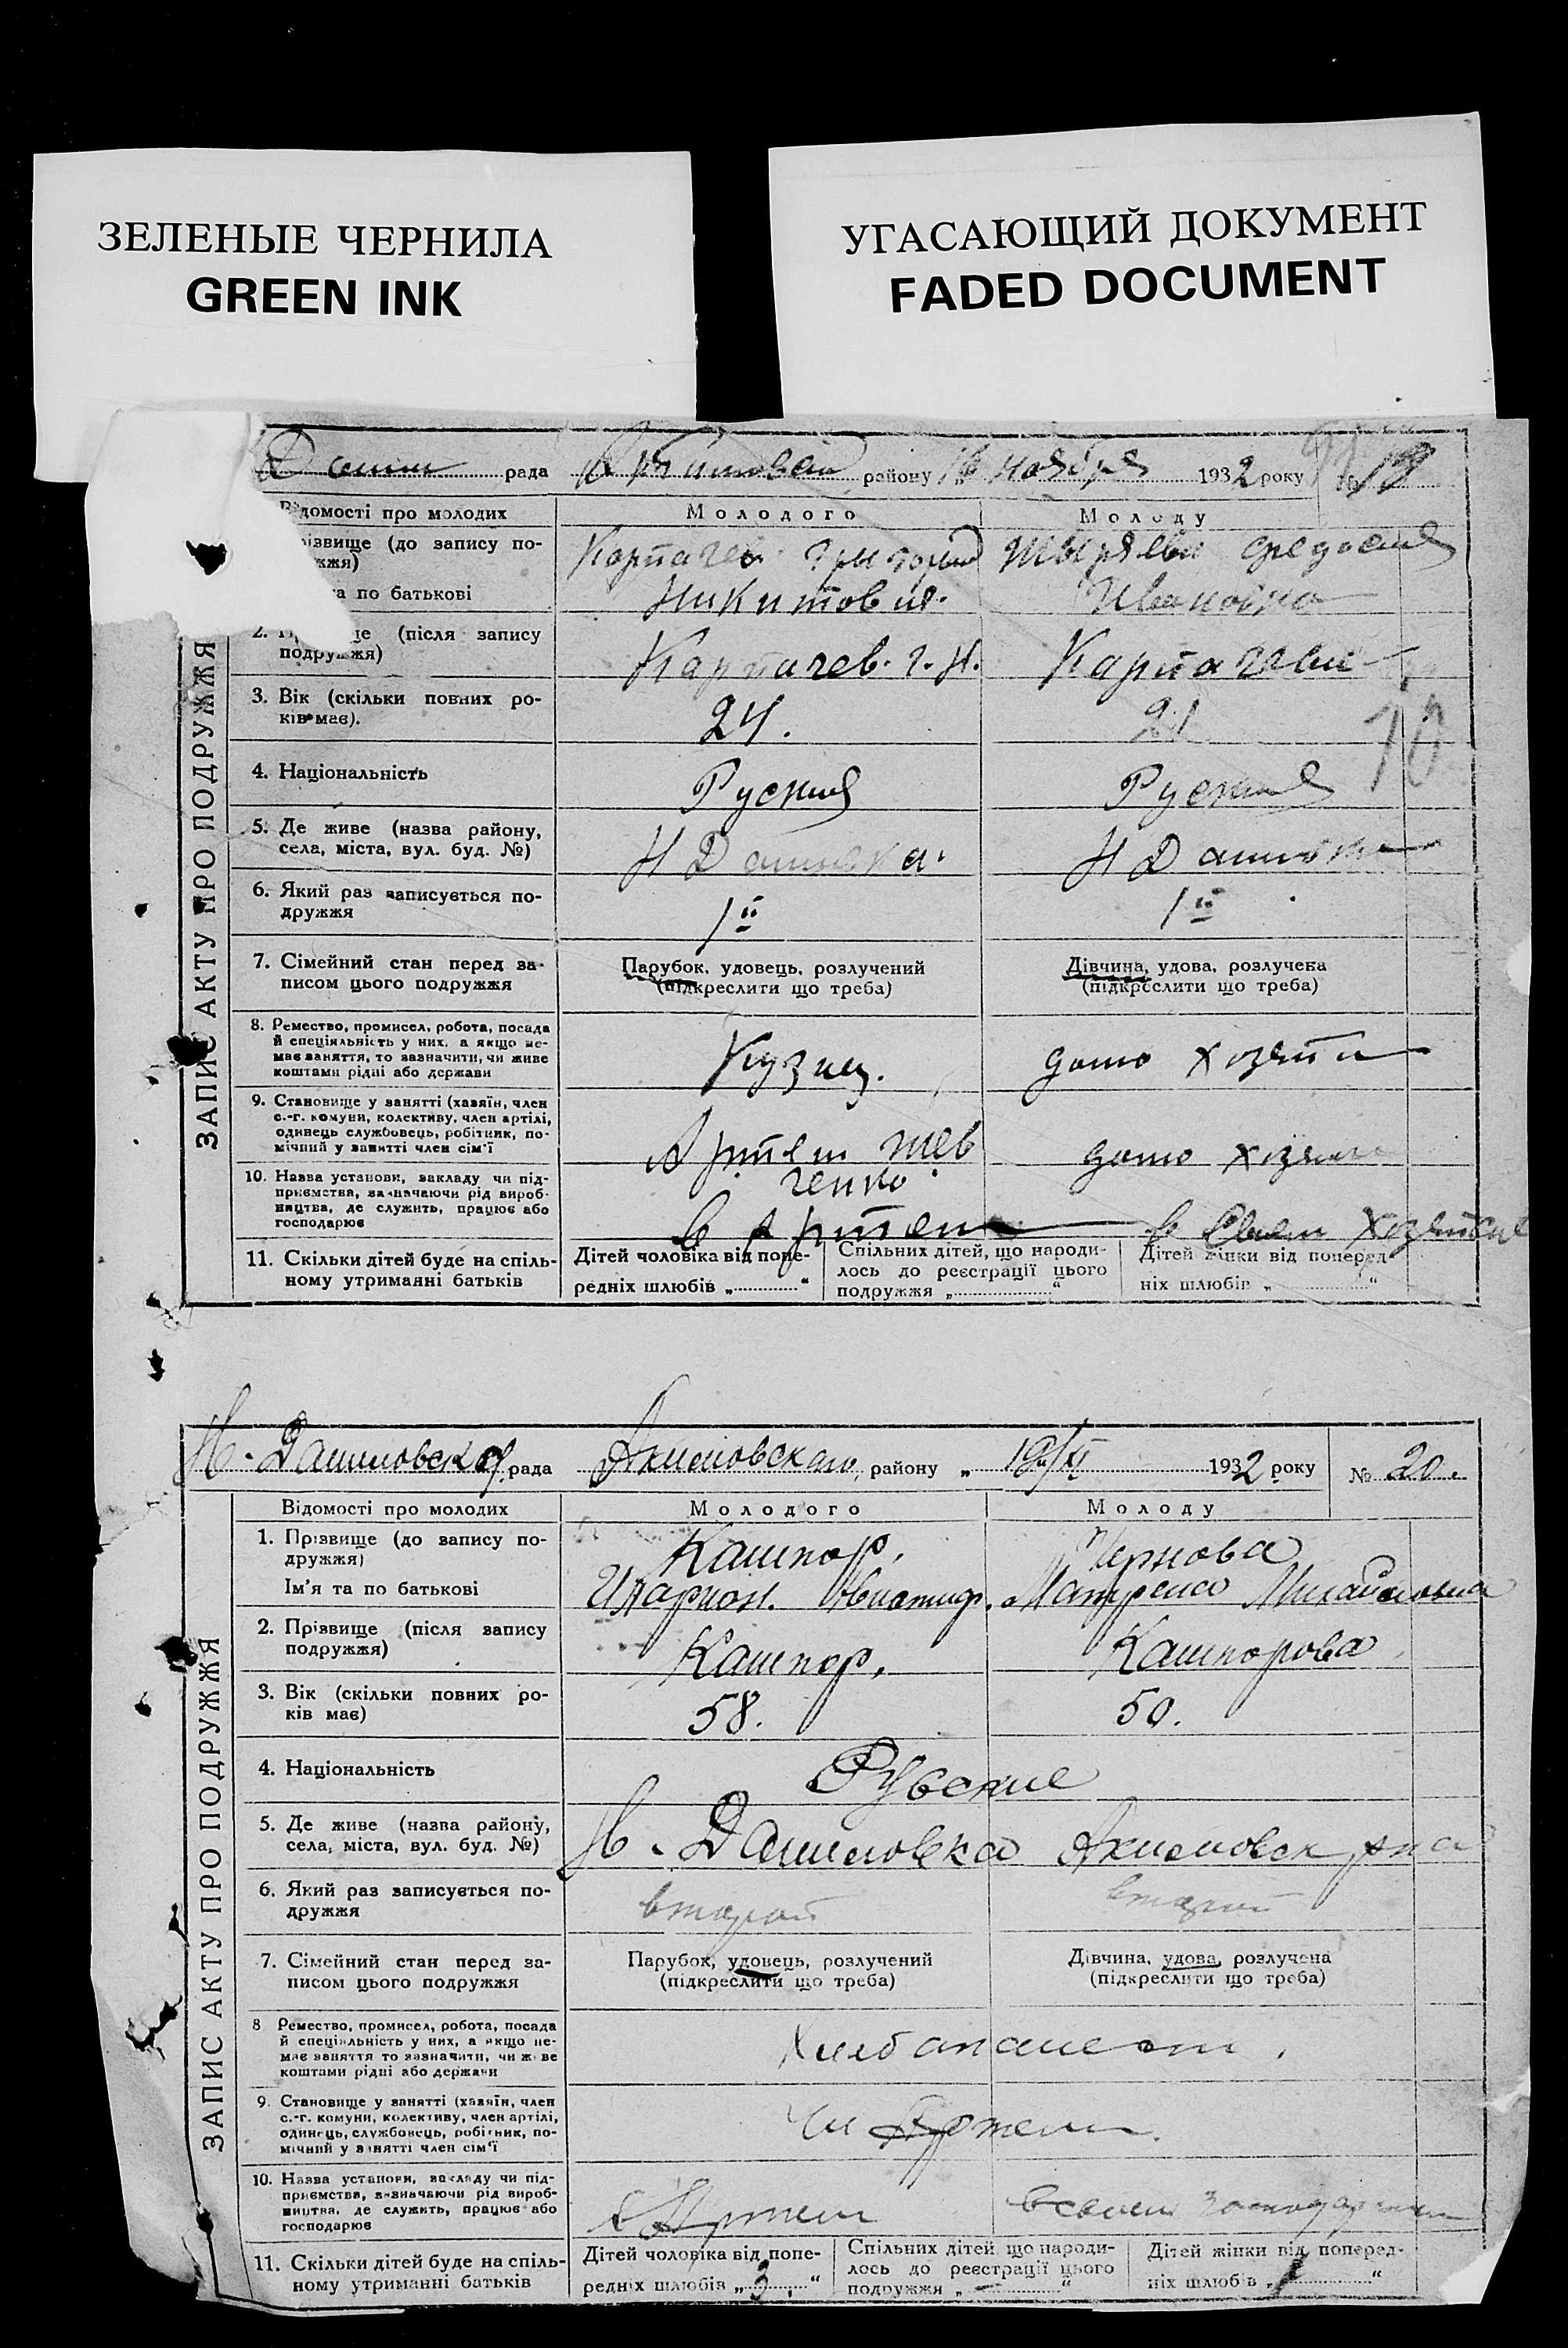 ЗЕЛЕНЫЕ ЧЕРНИЛА
GREEN INK
УГАСАЮЩИЙ ДОКУМЕНТ
FADED DOCUMENT
рада району ноября 1932 року № 19
ЗАПИС АКТУ ПРО ПОДРУЖЖЯ
Відомості про молодих Молодого Молоду
(до запису по-
Карпачев Григорий
по батькові Никитович. Ивановна
2. (після запису
подружжя) Карпачев. Г. Н. Карпачева
3. Вік (скільки повних ро-
ків має). 24. 21
10
4. Національність Руский Руская
5. Де живе (назва району,
села, міста, вул. буд. №) Н
6. Який раз записується по-
дружжя 1й 1й
7. Сімейний стан перед за-
писом цього подружжя
Парубок, удовець, розлучений
(підкреслити що треба)
Дівчина, удова, розлучена
(підкреслити що треба)
8. Ремество, промисел, робота, посада
й спеціяльність у них, а якщо не-
має заняття, то зазначити, чи живе
коштами рідні або держави
Кузнец. домо
9. Становище у занятті (хазяїн, член
с.-г. комуни, колективу, член артілі,
одинець службовець, робітник, по-
мічний у занятті член сім'ї
Артель Шев
ченко домо
10. Назва установи, закладу чи під-
приємства, зазначаючи рід вироб-
ництва, де служить, працює або
господарює
в Артели в своем
11. Скільки дітей буде на спіль-
ному утриманні батьків
Дітей чоловіка від попе-
редніх шлюбів „ “
Спільних дітей, що народи-
лось до реєстрації цього
подружжя „ “
Дітей жінки від поперед-
ніх шлюбів „ “
Н-Даниловской рада Акимовского району „ 19/XI 1932 року № 20.
ЗАПИС АКТУ ПРО ПОДРУЖЖЯ
Відомості про молодих Молодого Молоду
1. Прізвище (до запису по-
дружжя) Кашпор. Чернова
Ім'я та по батькові Иларион. Матрена Михайловна
2. Прізвище (після запису
подружжя) Кашпор. Кашпорова
3. Вік (скільки повних ро-
ків має) 58. 50.
4. Національність Руские
5. Де живе (назва району,
села, міста, вул. буд. №) Н-Даниловка Акимовск р-на
6. Який раз записується по-
дружжя второй второй
7. Сімейний стан перед за-
писом цього подружжя
Парубок, удовець, розлучений
(підкреслити що треба)
Дівчина, удова, розлучена
(підкреслити що треба)
8 Ремество, промисел, робота, посада
й спеціяльність у них, а якщо не-
має заняття то зазначити, чи живе
коштами рідні або держави
9. Становище у занятті (хазяїн, член
с.-г. комуни, колективу, член артілі,
одинець, службовець, робітник, по-
мічний у занятті член сім'ї
Чл Артели.
10. Назва установи, закладу чи під-
приємства, зазначаючи рід вироб-
ництва, де служить, працює або
господарює
в Артели в своем
11. Скільки дітей буде на спіль-
ному утриманні батьків
Дітей чоловіка від попе-
редніх шлюбів „ 3. “
Спільних дітей що народи-
лось до реєстрації цього
подружжя „ — “
Дітей жінки від поперед-
ніх шлюбів „ 1 “